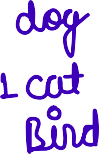 dog
1 cat
Bird